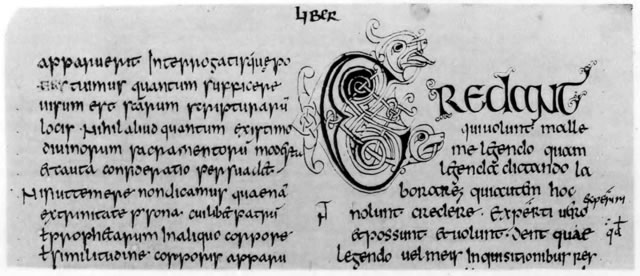 LIBER
apparuerit Interrogatisque po
tissimus quantum sufficere
uisum est scarum scripturarū
locis. Nihil aliud quantum existimo
diuinorum sacramentorū modesta
et cauta consideratio persuadet
Nisi ut temere non dicamus quaenā
ex trinitate persona cuilibet patrū
⁊ prophetarum In aliquo corpore
⁊ similitudine corporis apparu
CREDANT
qui uolunt malle
me legendo quam
legenda dictando la
borare qui autem hoc
nolunt credere. Experti uero
et possunt et uolunt. Dent quae
legendo uel meis Inquisitionibus res